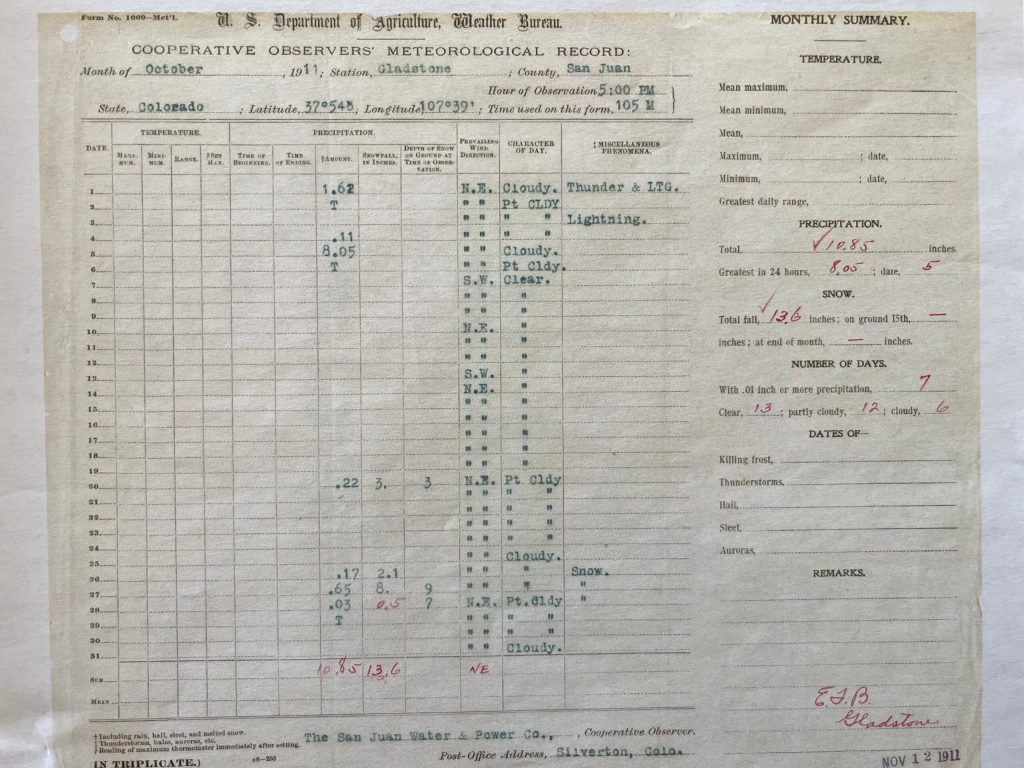 Form No. 1009—Met'l.
U. S. Department of Agriculture, Weather Bureau.
COOPERATIVE OBSERVERS' METEOROLOGICAL RECORD:
Month of October, 1911; Station, Gladstone; County, San Juan
Hour of Observation 5:00 PM
State, Colorado; Latitude, 37°54'; Longitude 107°39'; Time used on this form, 105 M
DATE. TEMPERATURE. PRECIPITATION. PREVAILING WIND DIRECTION. CHARACTER OF DAY. ‡ MISCELLANEOUS PHENOMENA.
MAXIMUM. MINIMUM. RANGE. ‡ SET MAX. TIME OF BEGINNING. TIME OF ENDING. † AMOUNT. SNOWFALL, IN INCHES. DEPTH OF SNOW ON GROUND AT TIME OF OBSERVATION.
1 1.62 N.E. Cloudy. Thunder & LTG.
2 T " " Pt CLDY
3 " " " " Lightning.
4 .11 " " " "
5 8.05 " " Cloudy.
6 T " " Pt Cldy.
7 S.W. Clear.
8 " " "
9 " " "
10 N.E. "
11 " " "
12 " " "
13 S.W. "
14 N.E. "
15 " " "
16 " " "
17 " " "
18 " " "
19 " " "
20 .22 3. 3 N.E. Pt Cldy
21 " " " "
22 " " " "
23 " " " "
24 " " " "
25 " " Cloudy.
26 .17 2.1 " " " Snow.
27 .65 8. 9 " " " "
28 .03 0.5 7 N.E. Pt.Cldy "
29 T " " " "
30 " " " "
31 " " Cloudy.
SUM 10.85 13.6 NE
MEAN
† Including rain, hail, sleet, and melted snow.
‡ Thunderstorms, halos, auroras, etc.
‡ Reading of maximum thermometer immediately after setting.
The San Juan Water & Power Co., Cooperative Observer.
IN TRIPLICATE.)
c8—250
Post-Office Address, Silverton, Colo.
MONTHLY SUMMARY.
TEMPERATURE.
Mean maximum,
Mean minimum,
Mean,
Maximum, ; date,
Minimum, ; date,
Greatest daily range,
PRECIPITATION.
Total, 10.85 inches.
Greatest in 24 hours, 8.05; date, 5
SNOW.
Total fall, 13.6 inches; on ground 15th, —
inches; at end of month, — inches.
NUMBER OF DAYS.
With .01 inch or more precipitation, 7
Clear, 13; partly cloudy, 12; cloudy, 6
DATES OF—
Killing frost,
Thunderstorms,
Hail,
Sleet,
Auroras,
REMARKS.
Gladstone
NOV 12 1911